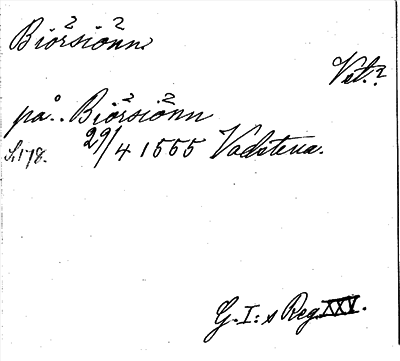 Biörsiönn
Vet.?
på.. Biörsiönn
S. 178. 29/4 1555 Vadstena.
G. I:s Reg XXV.